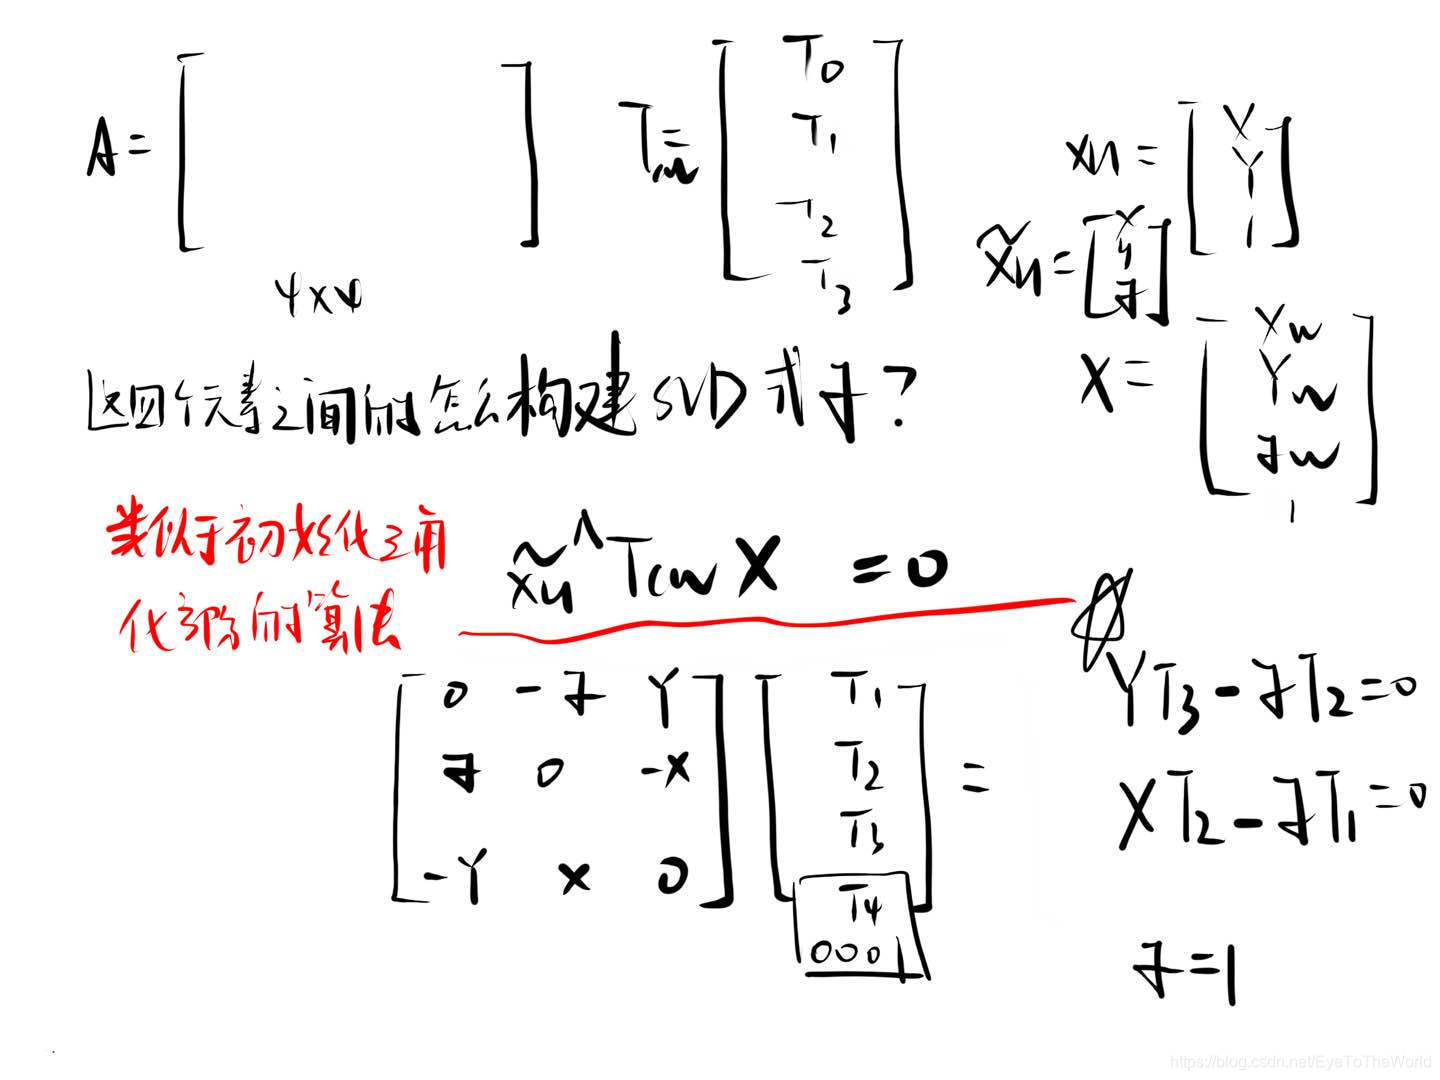 A = [ ]
4×4
Tcw = [ T0
T1
T2
T3 ]
xn = [ X
Y
1 ]
x̃n = [ x
y
z ]
X = [ Xw
Yw
Zw
1 ]
这四个元素之间的怎么构建SVD式子?
类似于初始化三角
化那部分的算法
x̃n^ Tcw X = 0
[ 0 -z Y
z 0 -x
-Y x 0 ]
[ T1
T2
T3
T4
0001 ] =
YT3 - zT2 = 0
XT2 - zT1 = 0
z = 1
https://blog.csdn.net/EyeToTheWorld